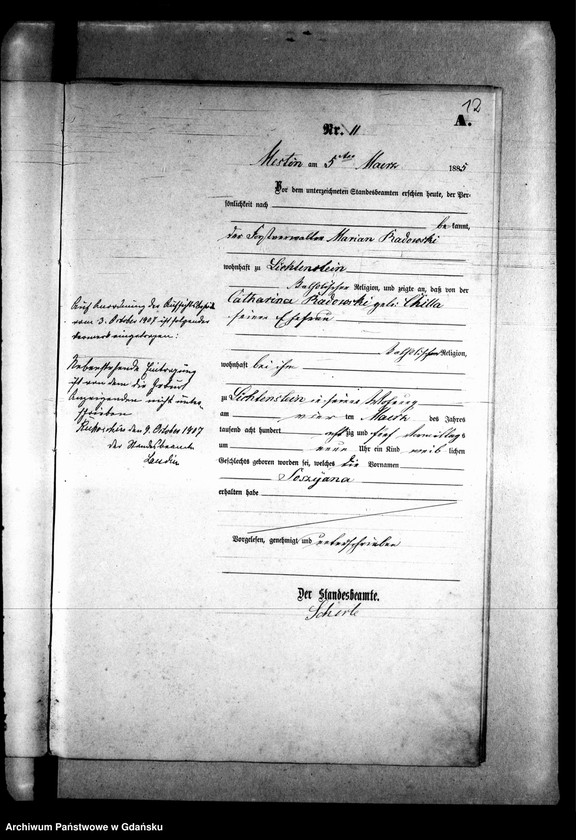 12
A.
Nr. 11
Mestin am 5ten Maerz 1885
Vor dem unterzeichneten Standesbeamten erschien heute, der Persönlichkeit nach
bekannt,
der Forstverwalter Marian Radowski
wohnhaft zu Lichtenstein
katholischer Religion, und zeigte an, daß von der
Catharina Radowski geb: Chilla
seiner Ehefrau
katholischer Religion,
wohnhaft bei ihm
zu Lichtenstein in seiner Wohnung
am vier ten Maerz des Jahres
tausend acht hundert achtzig und fünf Vormittags
um neun Uhr ein Kind weib lichen
Geschlechts geboren worden sei, welches die Vornamen
Soszyana
erhalten habe
Vorgelesen, genehmigt und unterschrieben
Der Standesbeamte.
Auf Anordnung der Aufsichtsbehörde
vom 3. October 1907 ist folgender
Vermerk eingetragen:
Nebenstehende Eintragung
ist von dem die Geburt
Anzeigenden nicht unter-
schrieben
den 9. October 1907
Der Standesbeamte
Archiwum Państwowe w Gdańsku